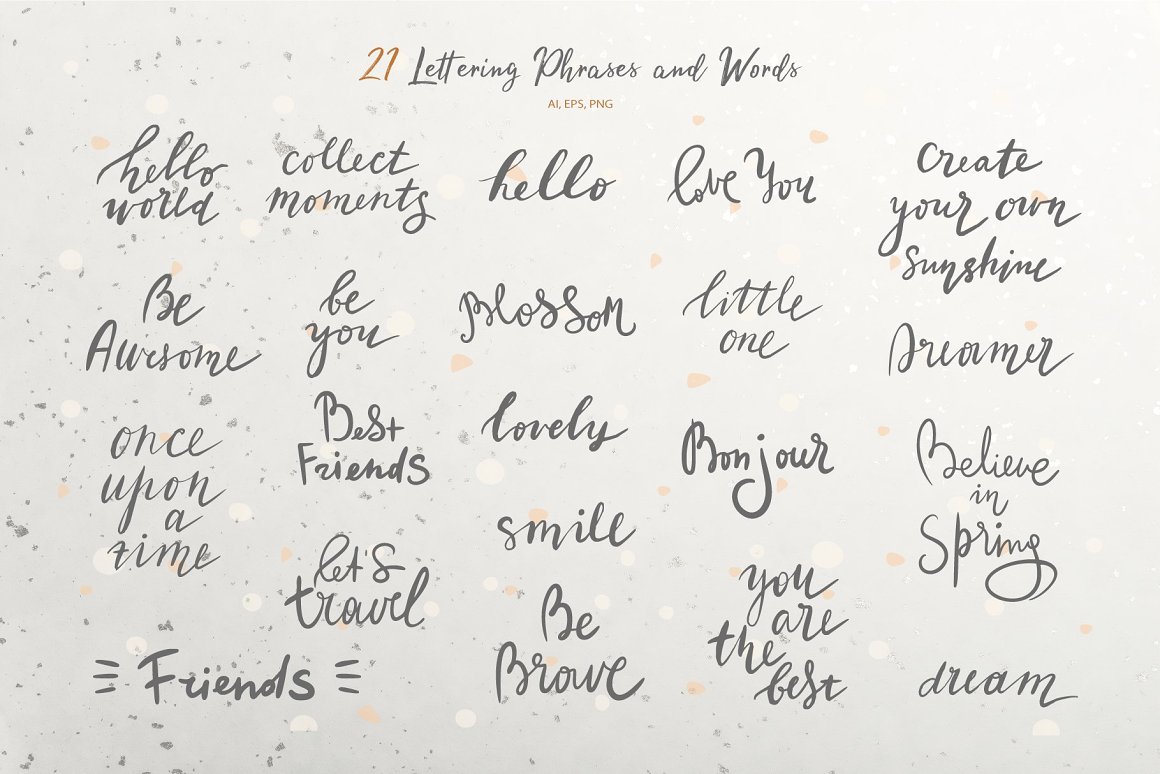 21 Lettering Phrases and Words
AI, EPS, PNG
hello
world
collect
moments
hello
love You
create
your own
sunshine
Be
Awesome
be
you
Blossom
little
one
Dreamer
once
upon
a
time
Best
Friends
lovely
Bonjour
Believe
in
Spring
let's
travel
smile
you
are
the
best
Be
Brave
Friends
dream